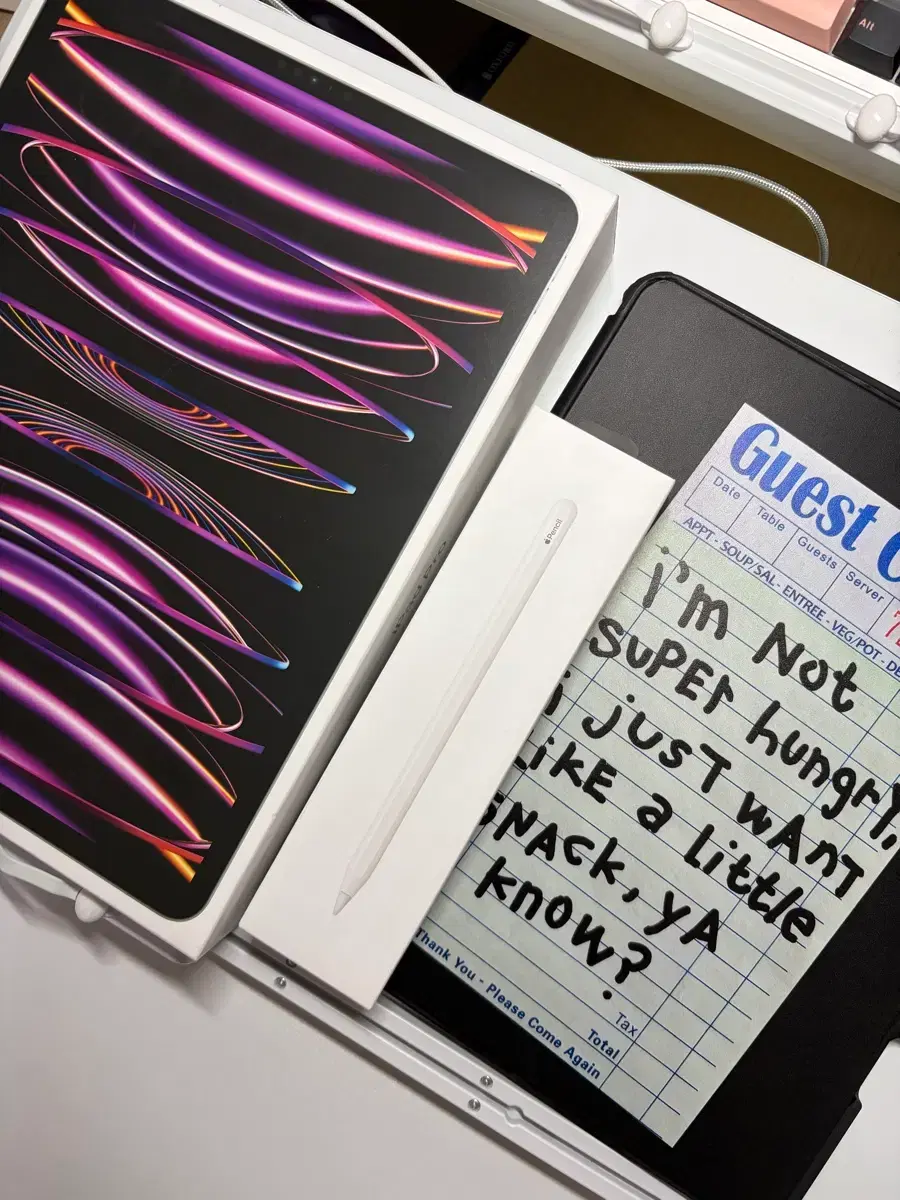 Alt
Pencil
Guest
Date
Table
Guests
Server
APPT - SOUP/SAL - ENTREE - VEG/POT -
i'm Not
SUPEr hungry,
i jUST wAnT
LiKE a little
SNAcK, yA
know?
Tax
Total
Thank You - Please Come Again